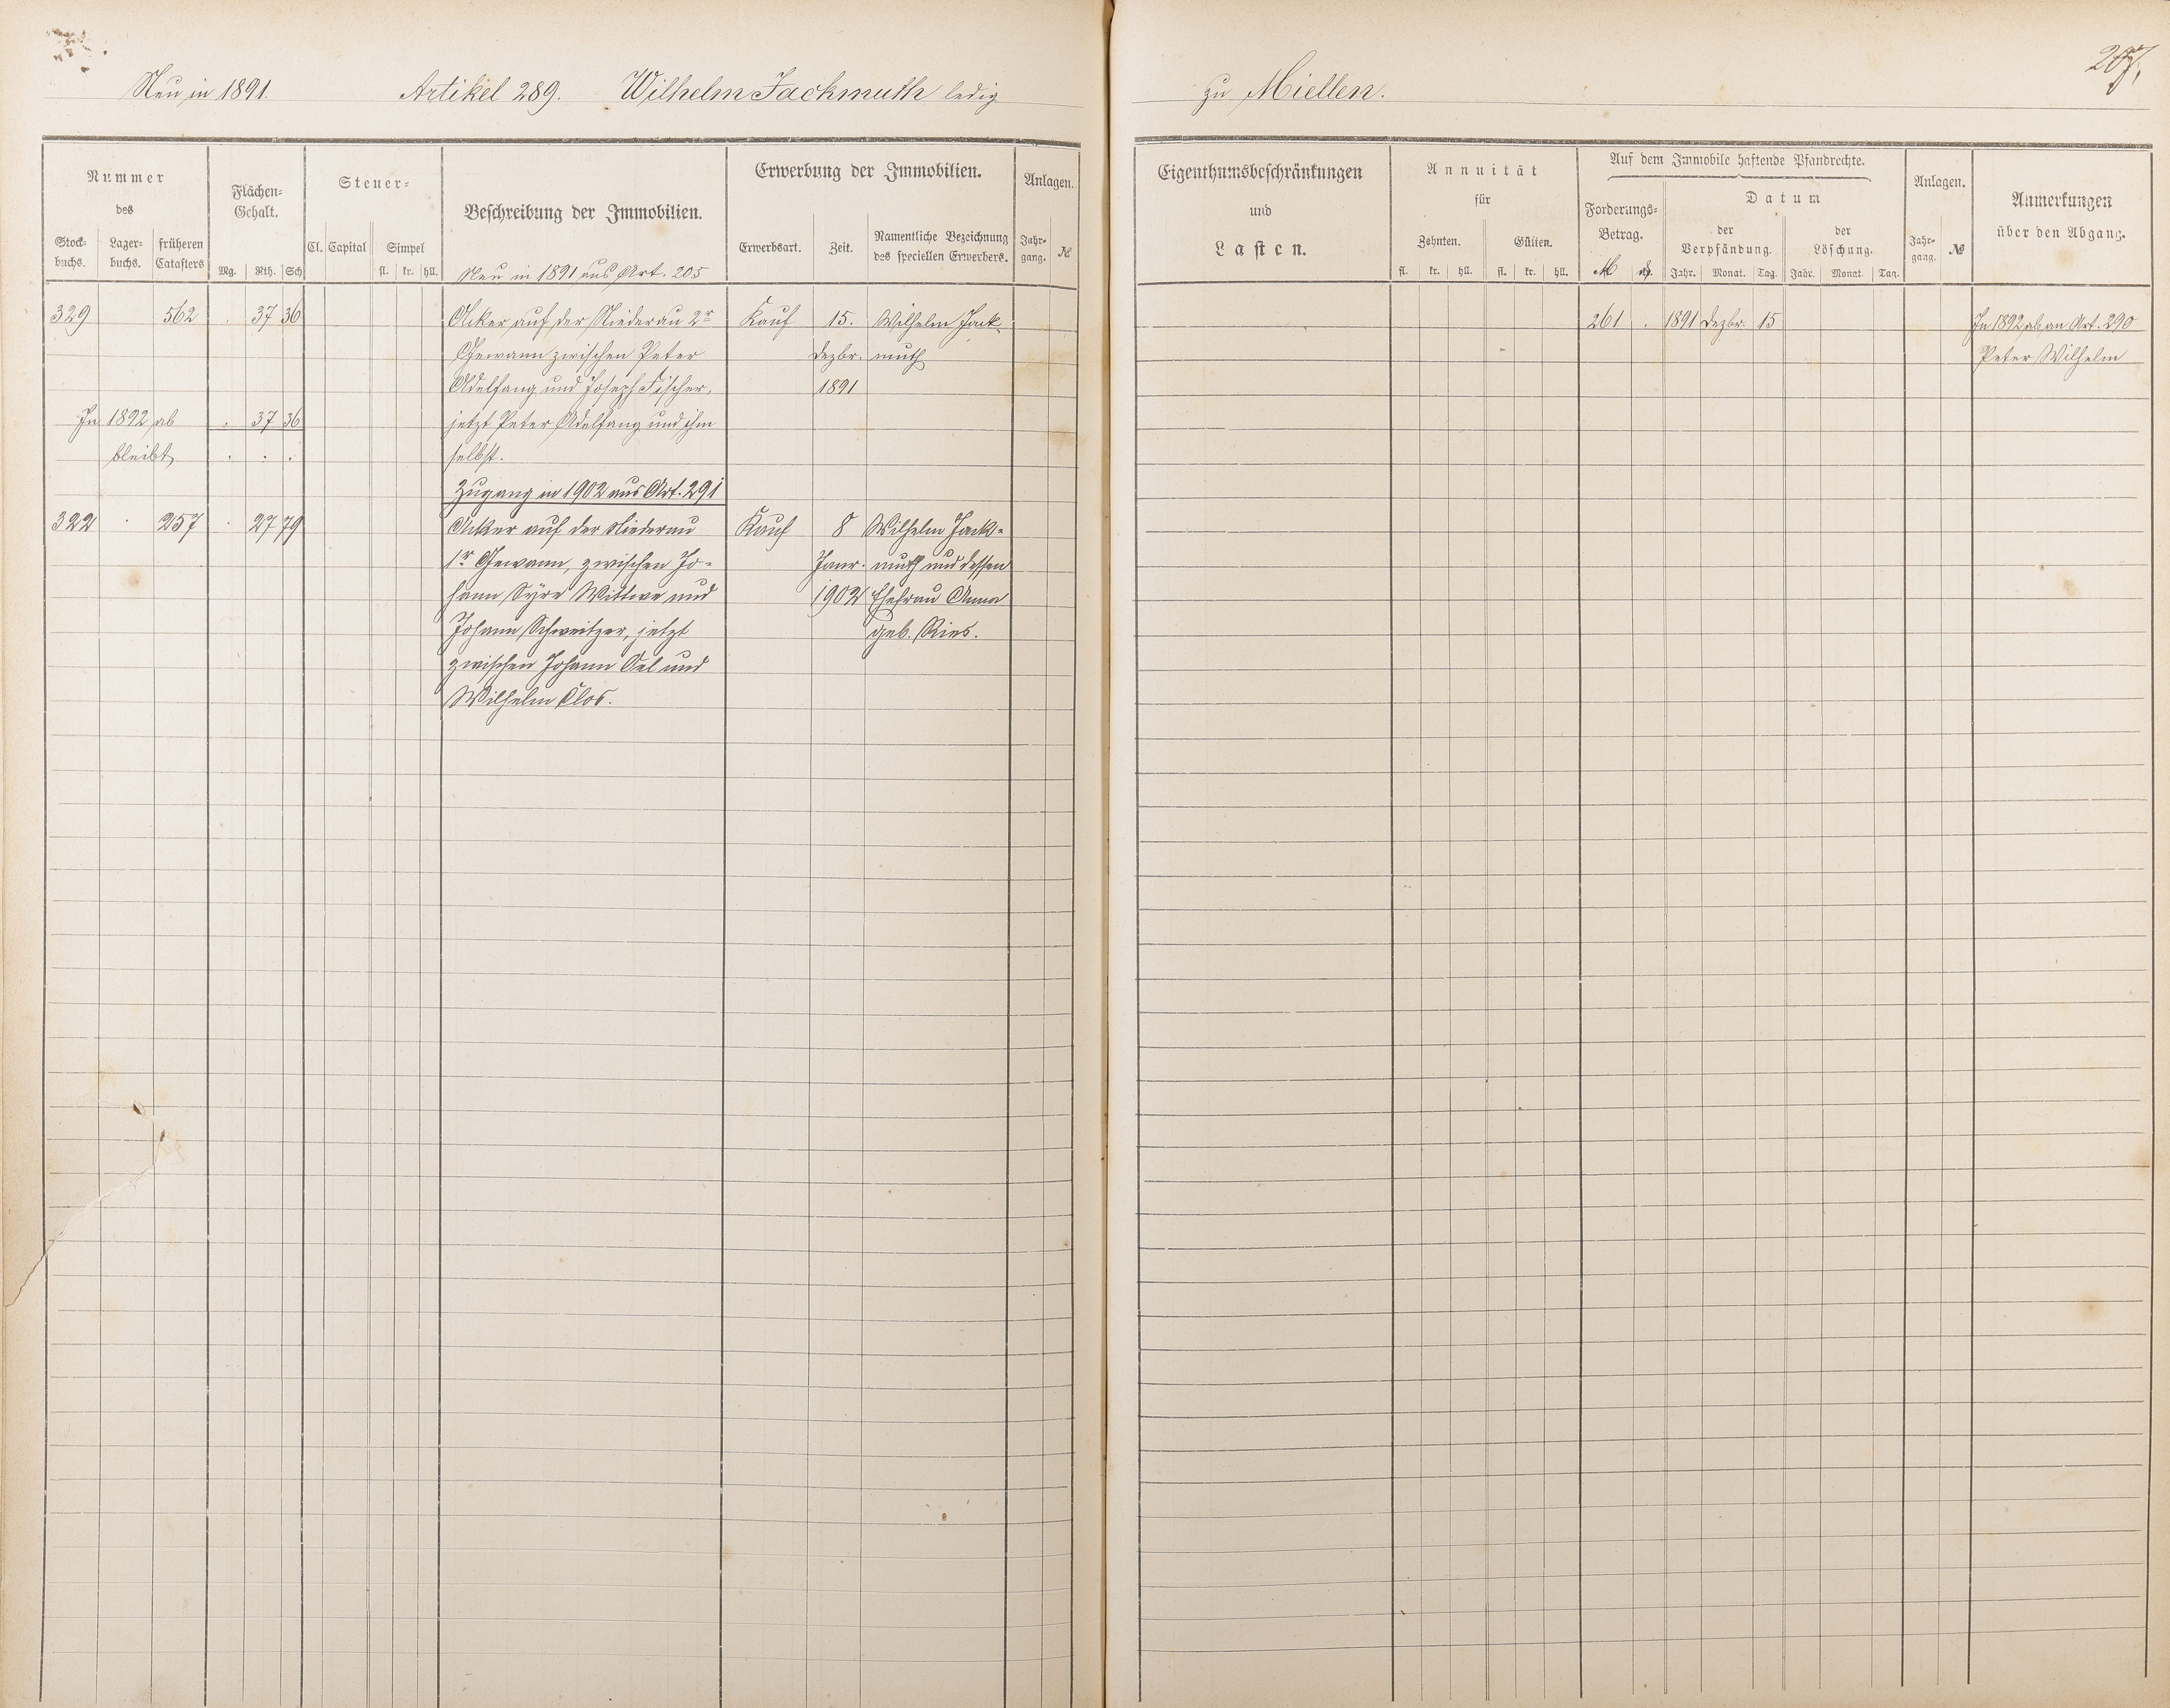 Neu in 1891. Artikel 289. Wilhelm Jackmuth ledig zu Miellen.
Nummer
des
Stock-
buchs.
Lager-
buchs.
früheren
Catasters
Flächen-
Gehalt.
Mg. Rth. Sch
Steuer-
Cl. Capital Simpel
fl. kr. hll.
Beschreibung der Immobilien.
Neu in 1891 aus Art. 205
Erwerbung der Immobilien.
Erwerbsart. Zeit.
Namentliche Bezeichnung
des speciellen Erwerbers.
Anlagen.
Jahr-
gang.
№
329 562 . 37 36
Acker auf der Niederau 2r
Gewann zwischen Peter
Adelfang und Joseph Fischer,
jetzt Peter Adelfang und ihm
selbst.
Kauf
15.
Dezbr.
1891
Wilhelm Jack-
muth
In 1892 ab . 37 36
bleibt . . .
Zugang in 1902 aus Art. 291
322 . 257 . 27 79
Acker auf der Niederau
1r Gewann, zwischen Jo-
hann Syre Wittwe und
Johann Schweitzer, jetzt
zwischen Johann Oel und
Wilhelm Clos.
Kauf
8
Janr.
1902
Wilhelm Jack-
muth und dessen
Ehefrau Anna
geb. Ries.
Eigenthumsbeschränkungen
und
Lasten.
Annuität
für
Zehnten. Gülten.
fl. kr. hll. fl. kr. hll.
Auf dem Immobile haftende Pfandrechte.
Forderungs-
Betrag.
M
Datum
der
Verpfändung.
Jahr. Monat. Tag.
der
Löschung.
Jahr. Monat. Tag.
Anlagen.
Jahr-
gang.
№
Anmerkungen
über den Abgang.
261 . 1891 Dezbr. 15
In 1892 ab an Art. 290
Peter Wilhelm